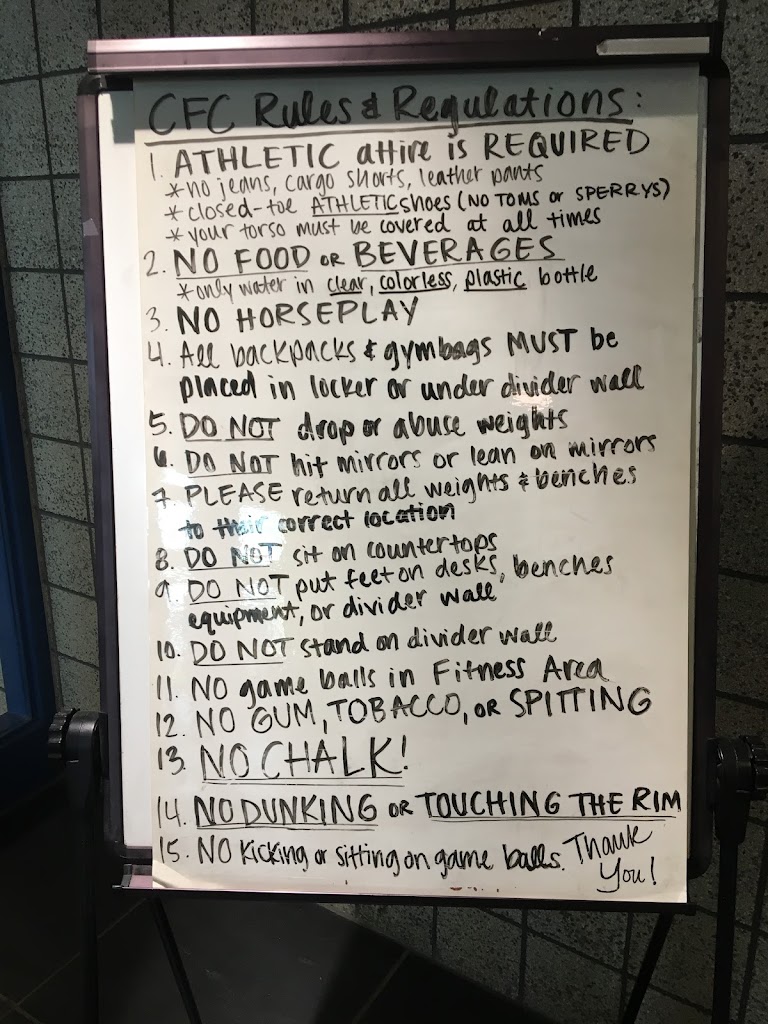 CFC Rules & Regulations:
1. ATHLETIC attire is REQUIRED
*no jeans, cargo shorts, leather pants
*closed-toe ATHLETIC shoes (NO TOMS or SPERRYS)
*your torso must be covered at all times
2. NO FOOD OR BEVERAGES
*only water in clear, colorless, plastic bottle
3. NO HORSEPLAY
4. All backpacks & gymbags MUST be
placed in locker or under divider wall
5. DO NOT drop or abuse weights
6. DO NOT hit mirrors or lean on mirrors
7. PLEASE return all weights & benches
to their correct location
8. DO NOT sit on countertops
9. DO NOT put feet on desks, benches
equipment, or divider wall
10. DO NOT stand on divider wall
11. NO game balls in Fitness Area
12. NO GUM, TOBACCO, OR SPITTING
13. NO CHALK!
14. NO DUNKING OR TOUCHING THE RIM
15. NO Kicking or sitting on game balls. Thank
You!